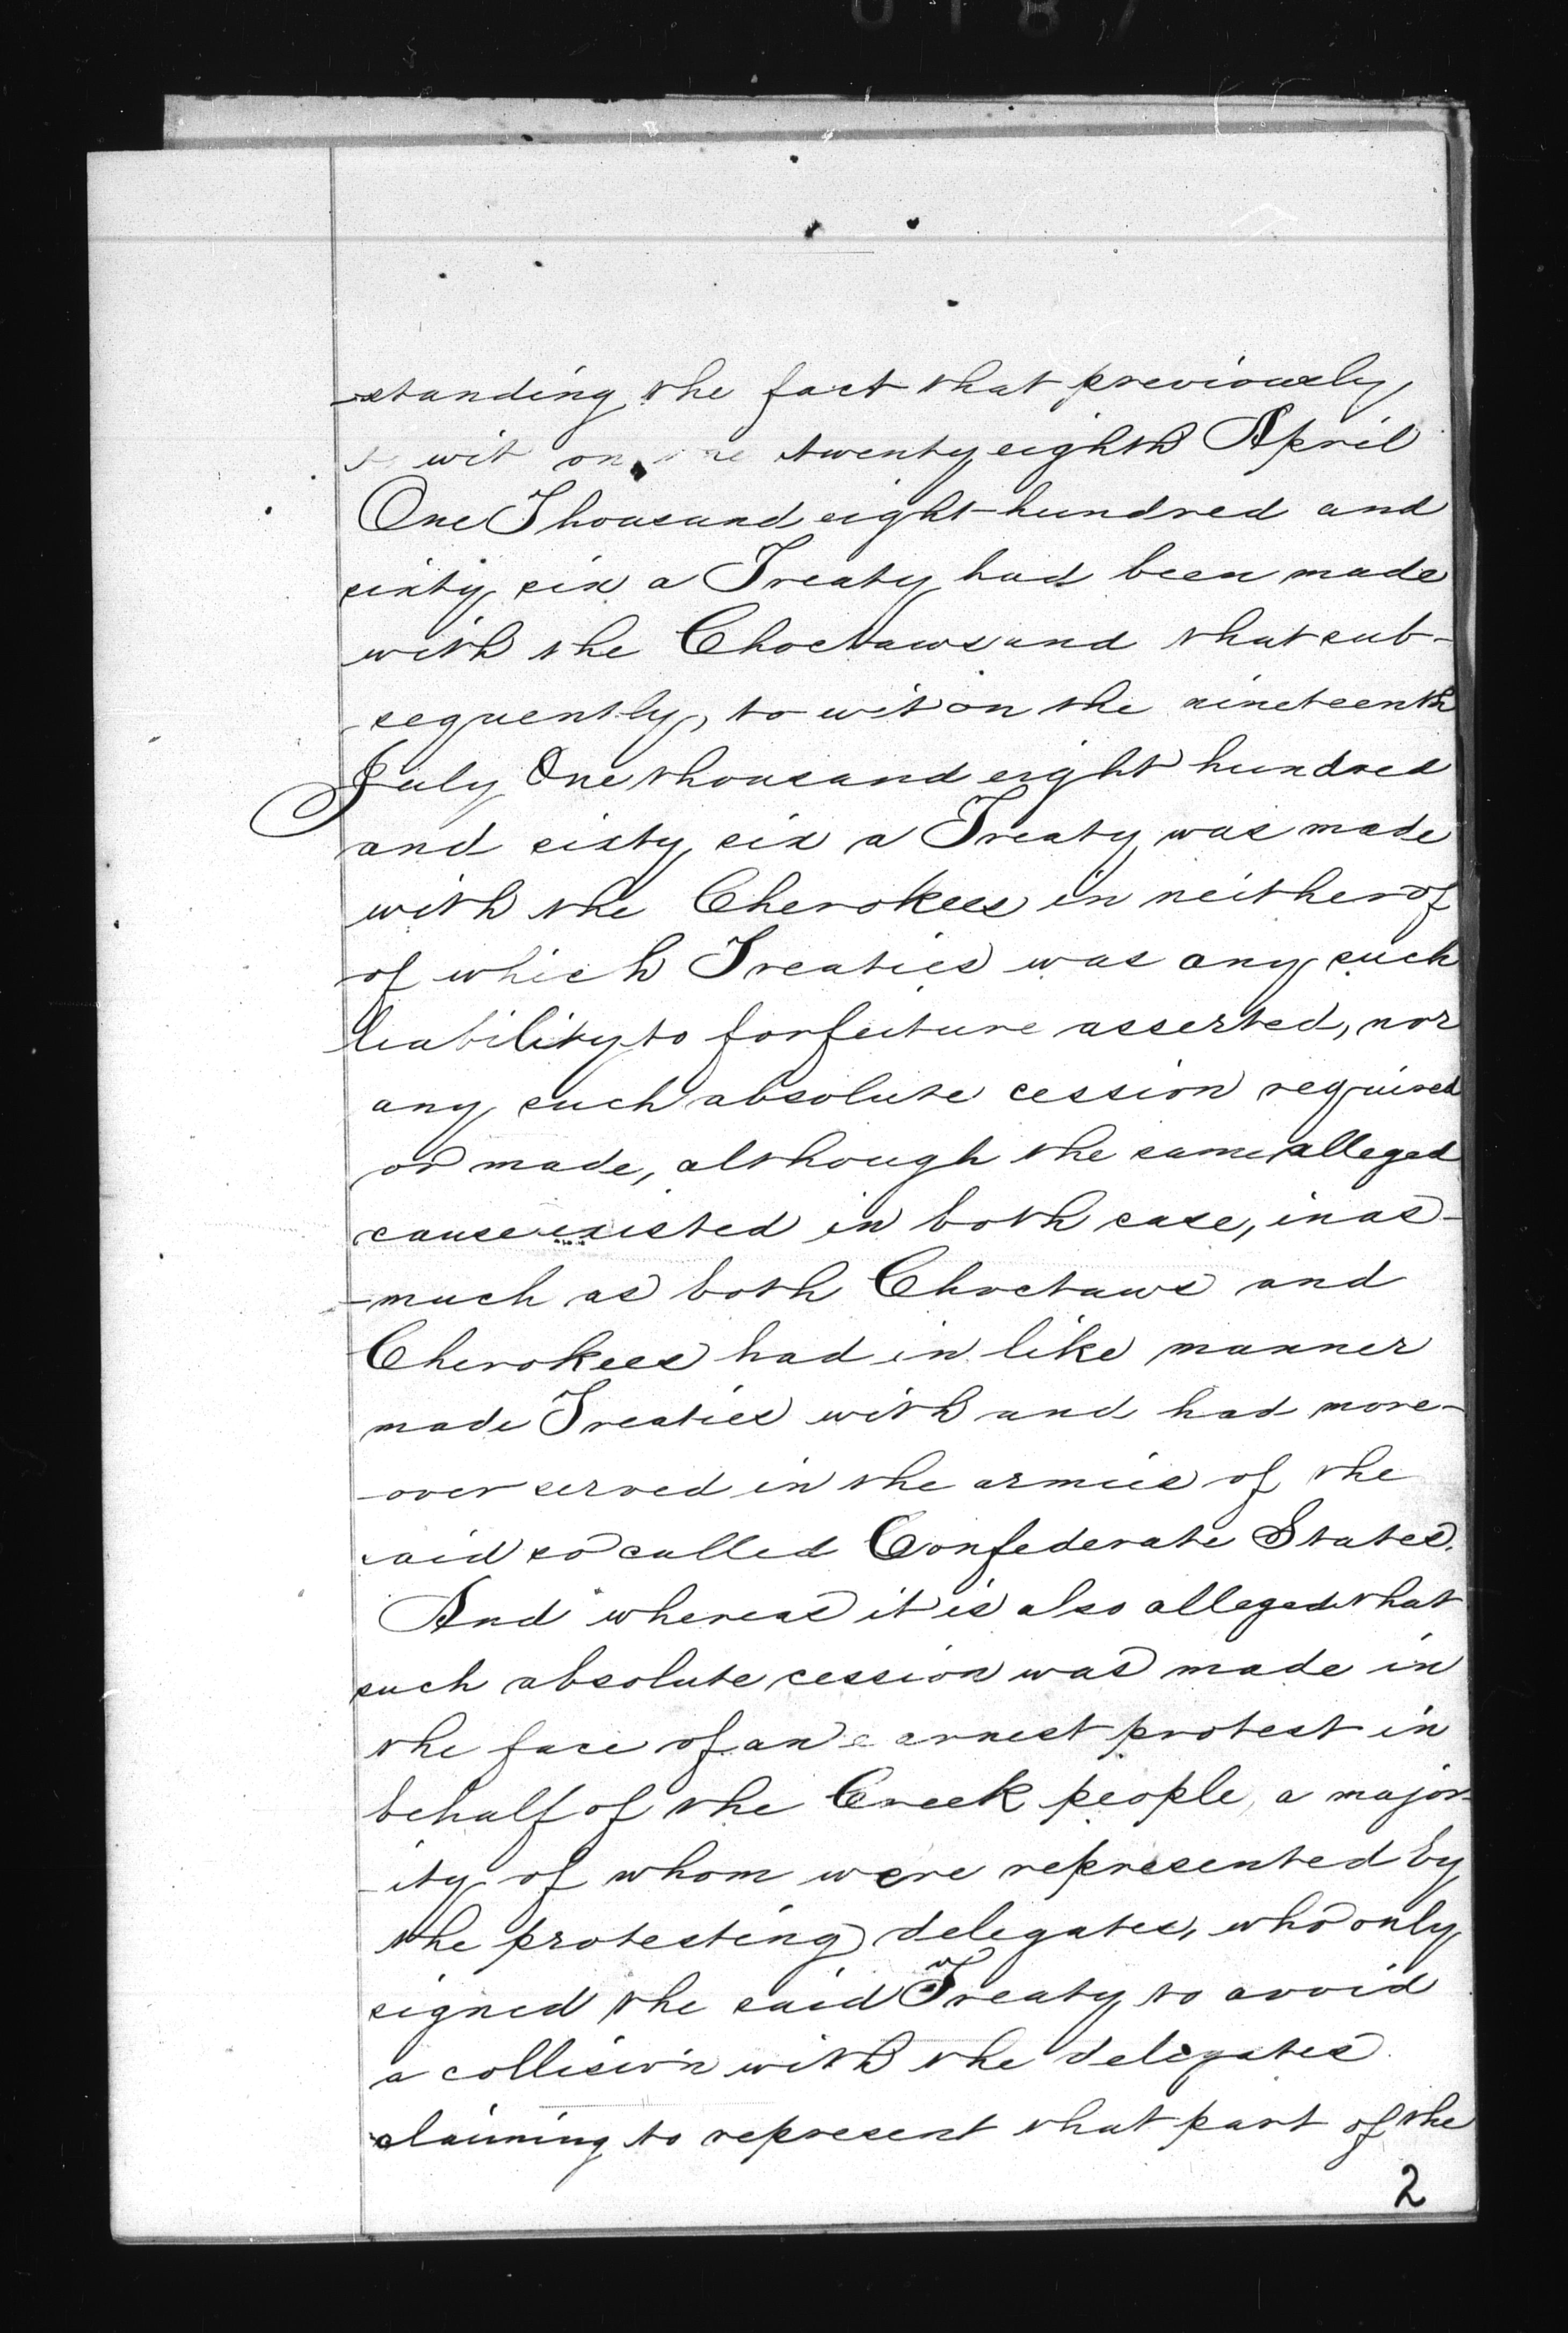 -standing the fact that previously,
to wit on the twenty eighth April
One Thousand eight hundred and
sixty six a Treaty had been made
with the Choctaws and that sub-
-sequently, to wit on the nineteenth
July One thousand eight hundred
and sixty six a Treaty was made
with the Cherokees in neither of
of which Treaties was any such
liability to forfeiture asserted, nor
any such absolute cession required
or made, although the same alleged
cause existed in both case, inas-
-much as both Choctaws and
Cherokees had in like manner
made Treaties with and had more-
-over served in the armies of the
said so called Confederate States.
And whereas it is also alleged that
such absolute cession was made in
the face of an earnest protest in
behalf of the Creek people, a major-
-ity of whom were represented by
the protesting delegates, who only
signed the said Treaty to avoid
a collision with the delegates
claiming to represent that part of the
2